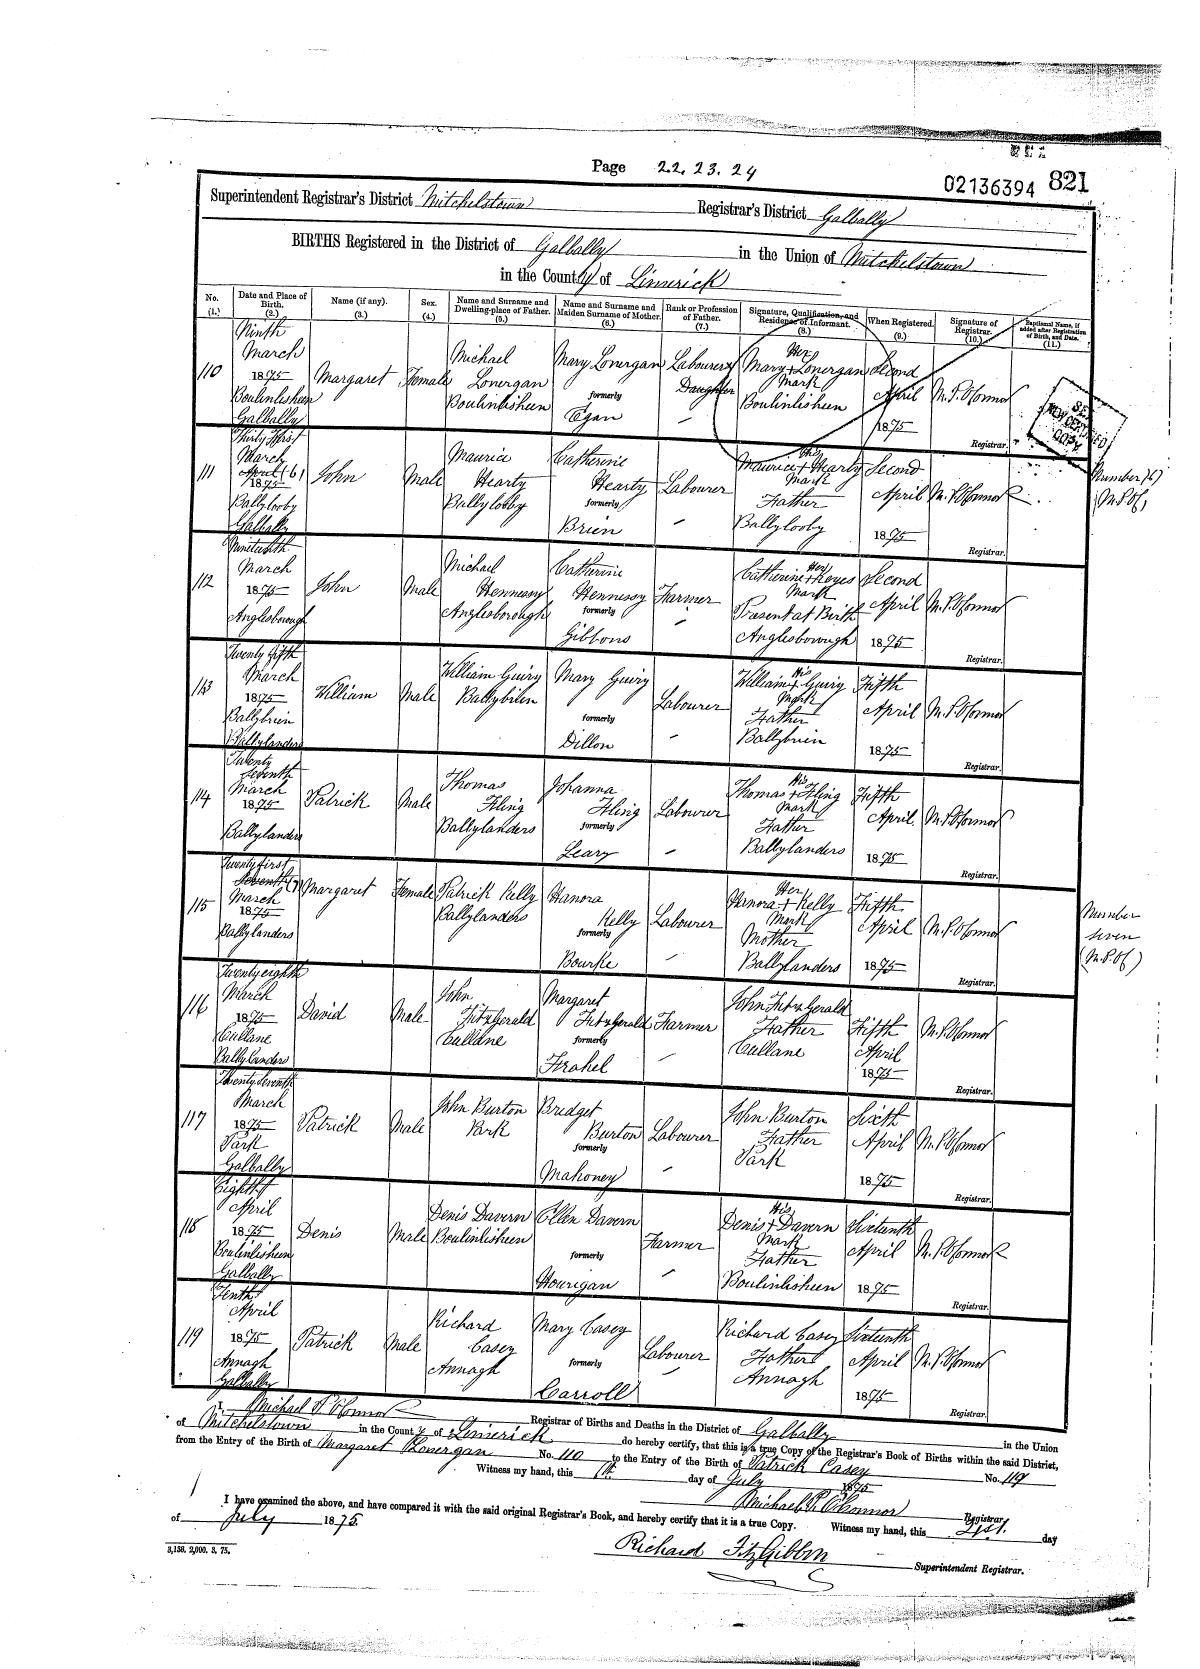 Page 22, 23. 24
02136394 821
Superintendent Registrar's District Mitchelstown Registrar's District Galbally
BIRTHS Registered in the District of Galbally in the Union of Mitchelstown
in the County of Limerick
No. (1.) Date and Place of Birth. (2.) Name (if any). (3.) Sex. (4.) Name and Surname and Dwelling-place of Father. (5.) Name and Surname and Maiden Surname of Mother. (6.) Rank or Profession of Father. (7.) Signature, Qualification, and Residence of Informant. (8.) When Registered. (9.) Signature of Registrar. (10.) Baptismal Name, if added after Registration of Birth, and Date. (11.)
110 Ninth March 1875 Boulinlisheen Galbally Margaret Female Michael Lonergan Boulinlisheen Mary Lonergan formerly Egan Labourer Daughter Mary + Lonergan Her Mark Boulinlisheen Second April 1875 M. P. O'Connor Registrar.
CERTIFIED COPY
111 Thirty First March April (6) 1875 Ballylooby Galbally John Male Maurice Hearty Ballylooby Catherine Hearty formerly Brien Labourer Maurice + Hearty His Mark Father Ballylooby Second April 1875 M. P. O'Connor Registrar.
Number (6)
M. P. O'C,
112 Nineteenth March 1875 Anglesborough John Male Michael Hennessy Anglesborough Catherine Hennessy formerly Gibbons Farmer Catherine + Keyes Her Mark Present at Birth Anglesborough Second April 1875 M. P. O'Connor Registrar.
113 Twenty fifth March 1875 Ballybrien Ballylanders William Male William Guiry Ballybrien Mary Guiry formerly Dillon Labourer William + Guiry His Mark Father Ballybrien Fifth April 1875 M. P. O'Connor Registrar.
114 Twenty seventh March 1875 Ballylanders Patrick Male Thomas Fling Ballylanders Johanna Fling formerly Leary Labourer Thomas + Fling His Mark Father Ballylanders Fifth April 1875 M. P. O'Connor Registrar.
115 Twenty first Seventh (7) March 1875 Ballylanders Margaret Female Patrick Kelly Ballylanders Hanora Kelly formerly Bourke Labourer Hanora + Kelly Her Mark Mother Ballylanders Fifth April 1875 M. P. O'Connor Registrar.
Number
seven
(M. P. O'C)
116 Twenty eighth March 1875 Cullane Ballylanders David Male John FitzGerald Cullane Margaret FitzGerald formerly Frahel Farmer John FitzGerald Father Cullane Fifth April 1875 M. P. O'Connor Registrar.
117 Twenty Seventh March 1875 Park Galbally Patrick Male John Burton Park Bridget Burton formerly Mahoney Labourer John Burton Father Park Sixth April 1875 M. P. O'Connor Registrar.
118 Eighth April 1875 Boulinlisheen Galbally Denis Male Denis Davern Boulinlisheen Ellen Davern formerly Hourigan Farmer Denis + Davern His Mark Father Boulinlisheen Sixteenth April 1875 M. P. O'Connor Registrar.
119 Tenth April 1875 Annagh Galbally Patrick Male Richard Casey Annagh Mary Casey formerly Carroll Labourer Richard Casey Father Annagh Sixteenth April 1875 M. P. O'Connor Registrar.
I, Michael P O'Connor Registrar of Births and Deaths in the District of Galbally in the Union
of Mitchelstown in the County of Limerick do hereby certify, that this is a true Copy of the Registrar's Book of Births within the said District,
from the Entry of the Birth of Margaret Lonergan No. 110 to the Entry of the Birth of Patrick Casey No. 119
Witness my hand, this day of July 1875
Michael P. O'Connor Registrar.
I have examined the above, and have compared it with the said original Registrar's Book, and hereby certify that it is a true Copy. Witness my hand, this 21st. day
of July 1875.
Richard FitzGibbon Superintendent Registrar.
3,138. 2,000. 3. 75.